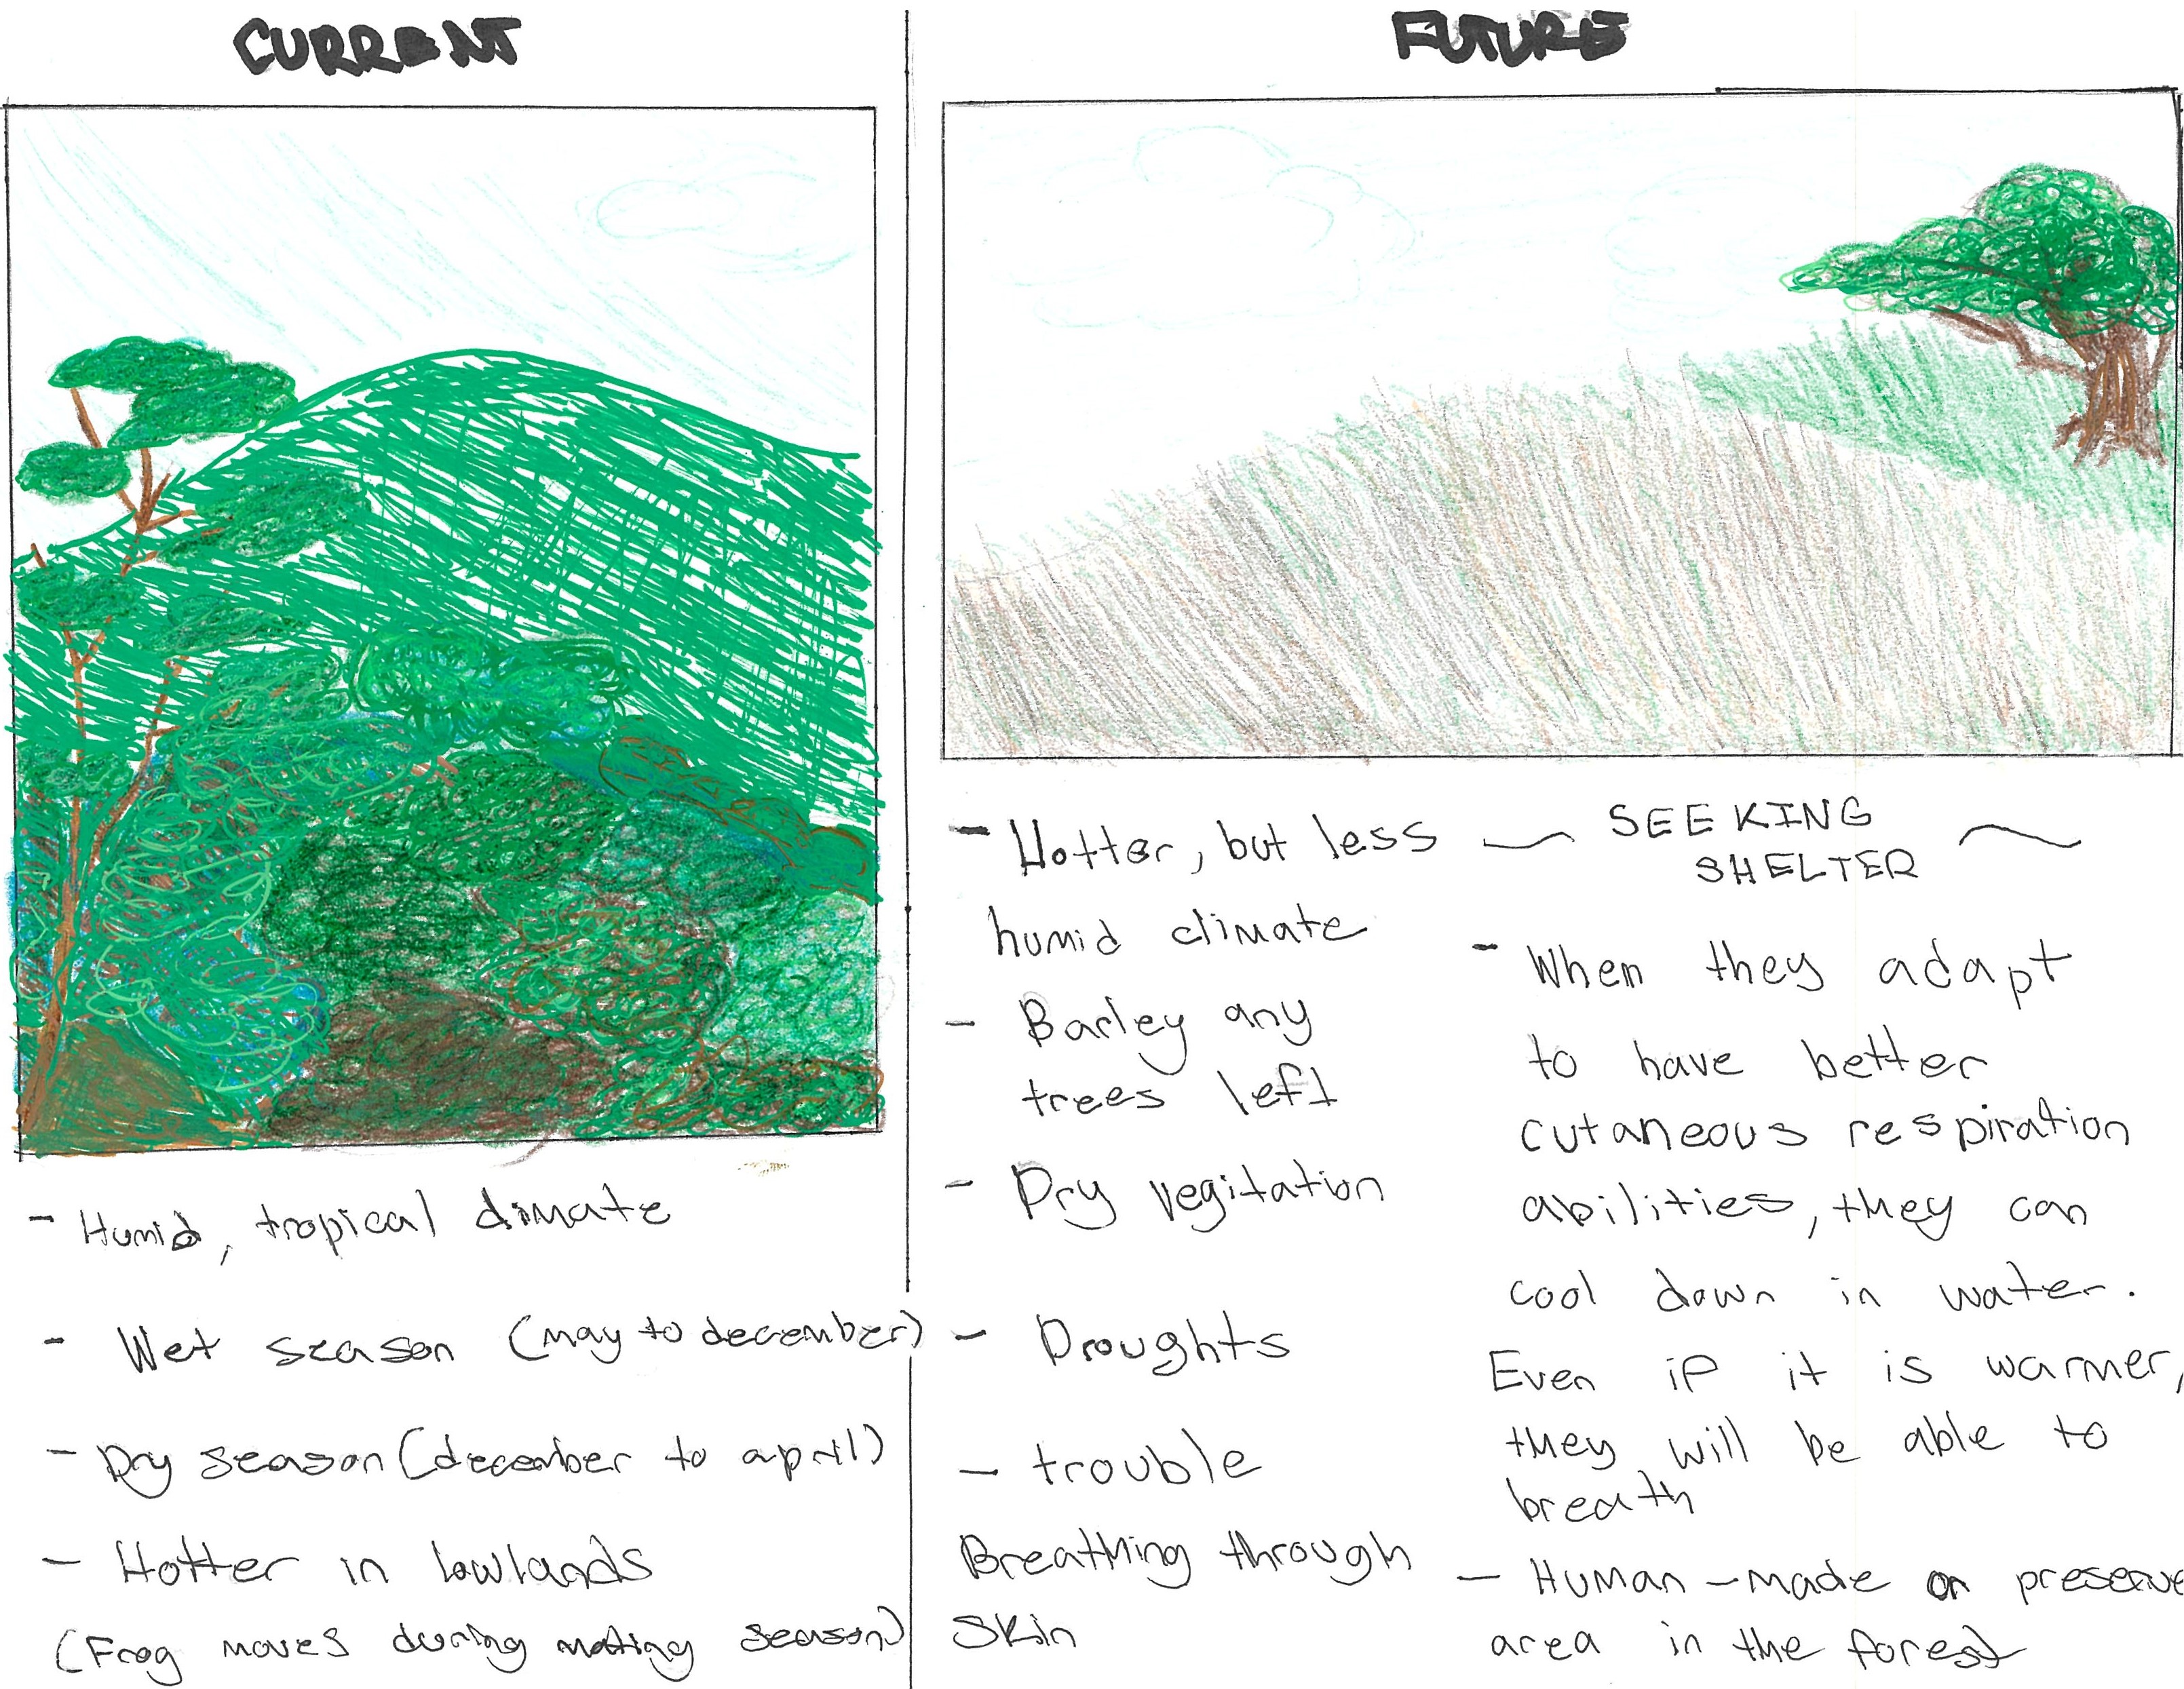 CURRENT
- Humid, tropical climate
- Wet season (may to december)
- Dry season (december to april)
- Hotter in lowlands
(Frog moves during mating season)
FUTURE
- Hotter, but less
humid climate
- Barley any
trees left
- Dry vegitation
- Droughts
- trouble
Breathing through
skin
~ SEEKING
SHELTER ~
- When they adapt
to have better
cutaneous respiration
abilities, they can
cool down in water.
Even if it is warmer,
they will be able to
breath
- Human-made or preserve
area in the forest